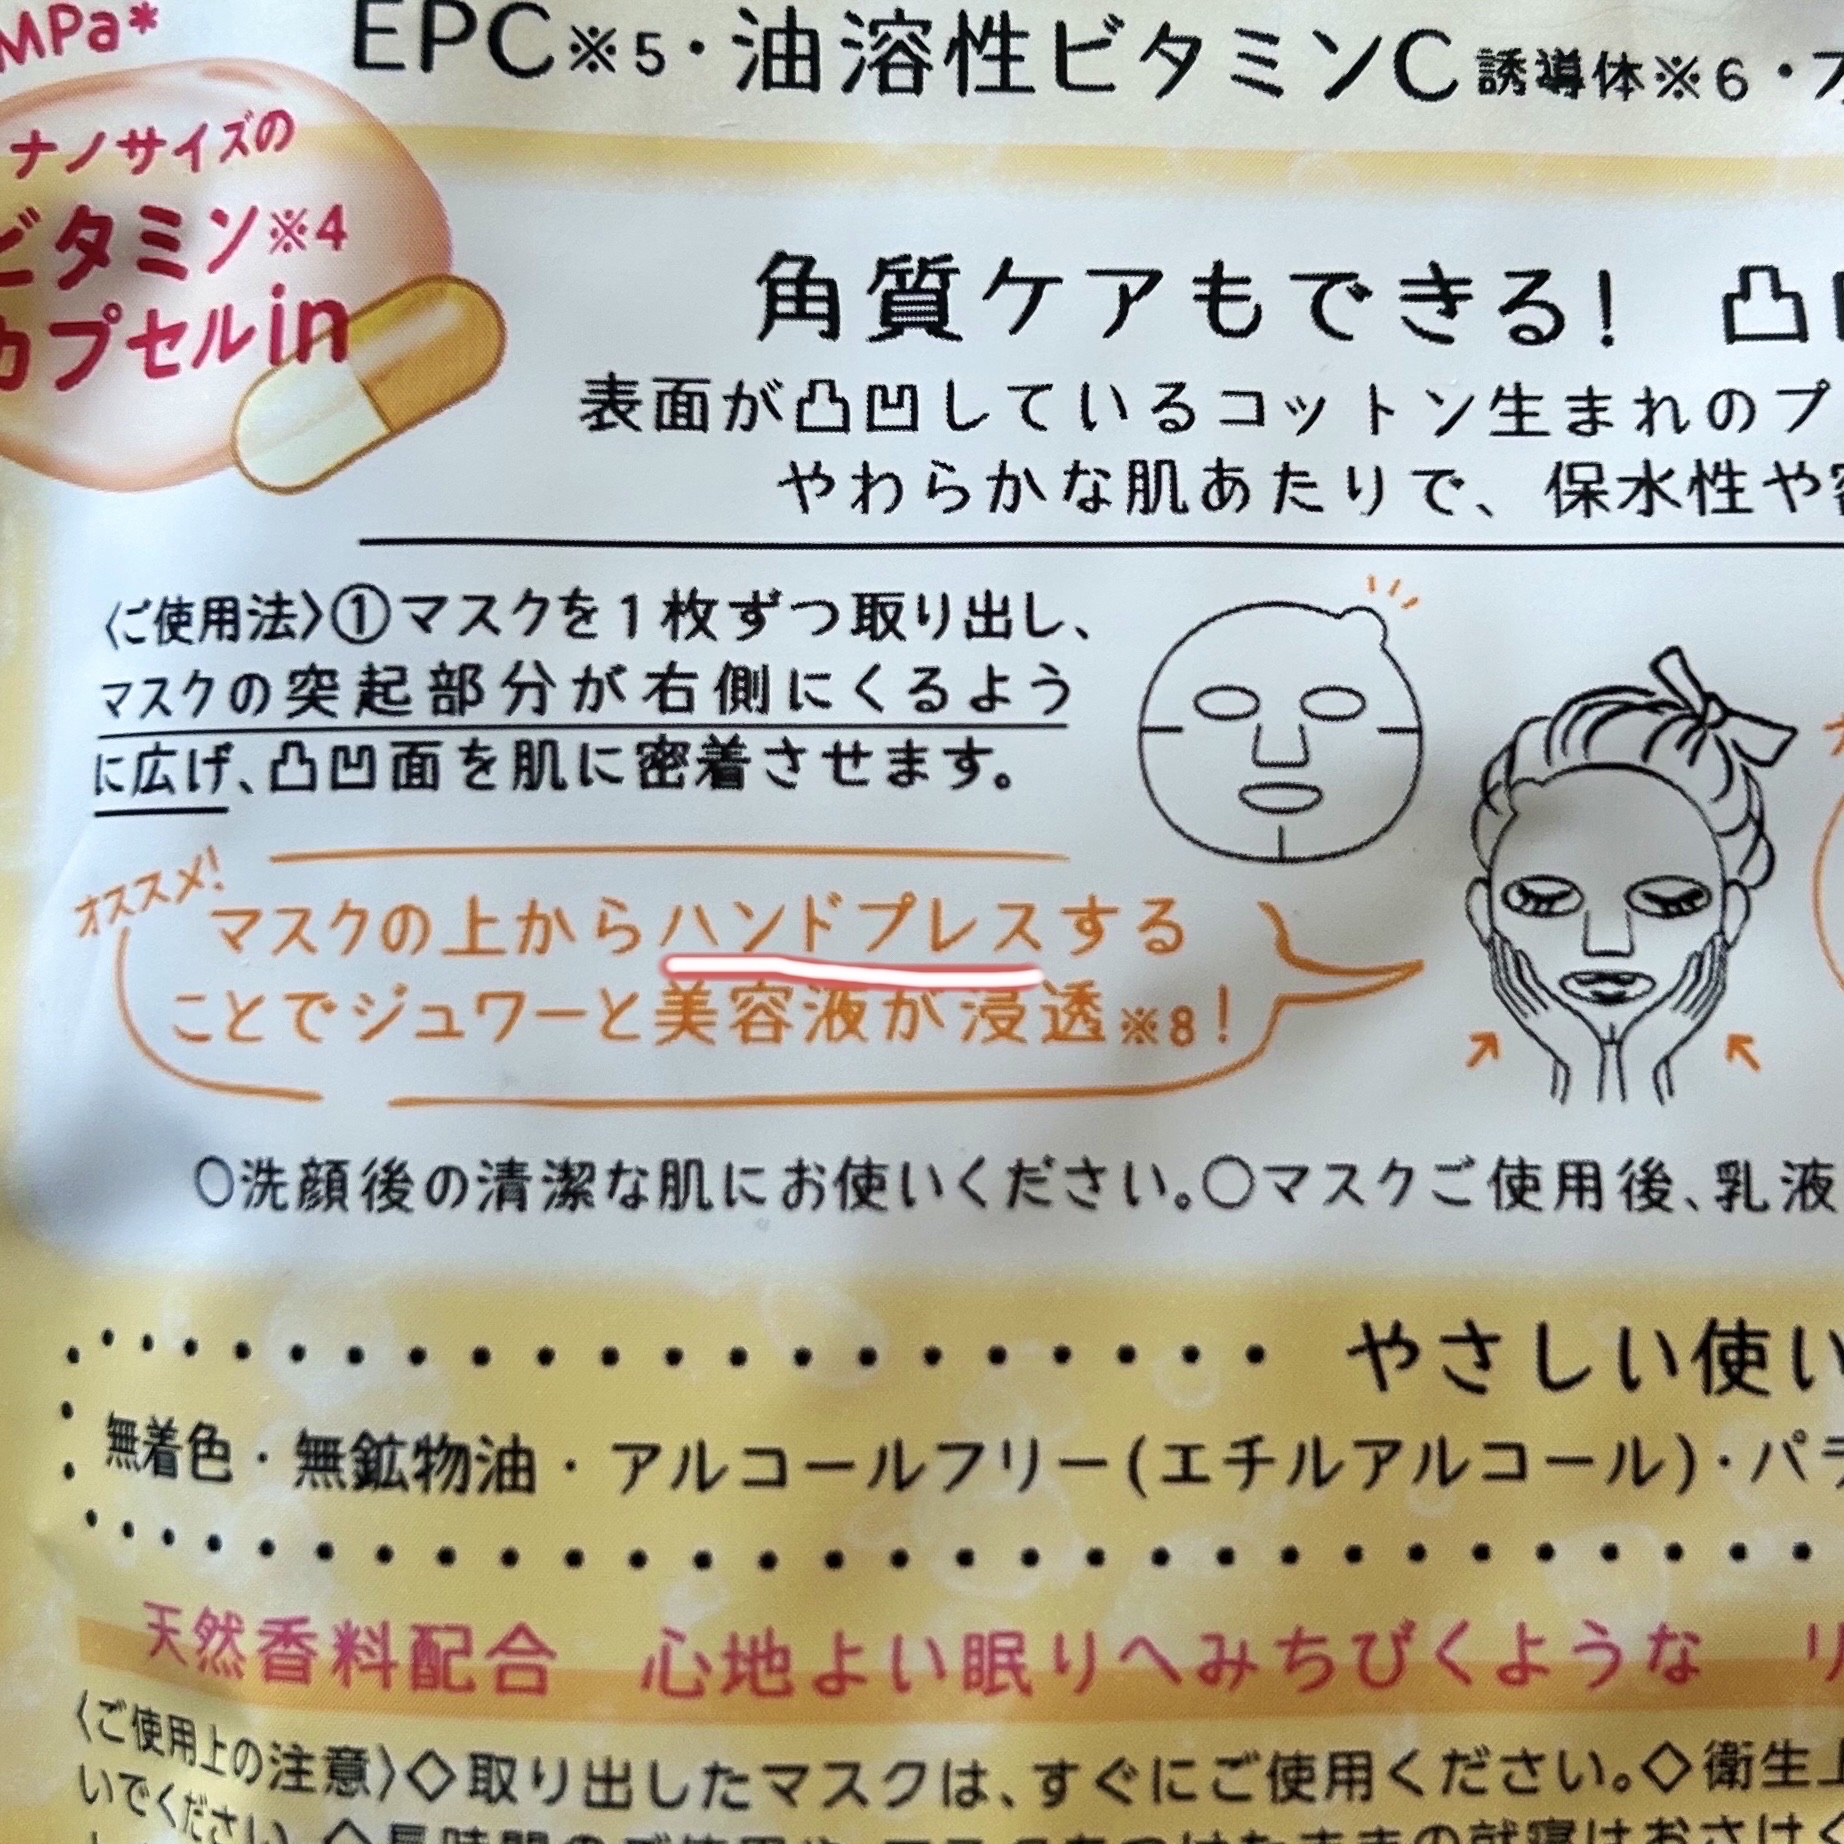 MPa*
ナノサイズの
ビタミン※4
カプセルin
EPC※5・油溶性ビタミンC誘導体※6・
角質ケアもできる! 凸
表面が凸凹しているコットン生まれのプ
やわらかな肌あたりで、保水性や
〈ご使用法〉①マスクを1枚ずつ取り出し、
マスクの突起部分が右側にくるよう
に広げ、凸凹面を肌に密着させます。
オススメ!
マスクの上からハンドプレスする
ことでジュワーと美容液が浸透※8!
○洗顔後の清潔な肌にお使いください。○マスクご使用後、乳液
やさしい使い
無着色・無鉱物油・アルコールフリー(エチルアルコール)・パラ
天然香料配合 心地よい眠りへみちびくような リ
〈ご使用上の注意〉◇取り出したマスクは、すぐにご使用ください。◇衛生上
いでください。◇長時間のご使用や、